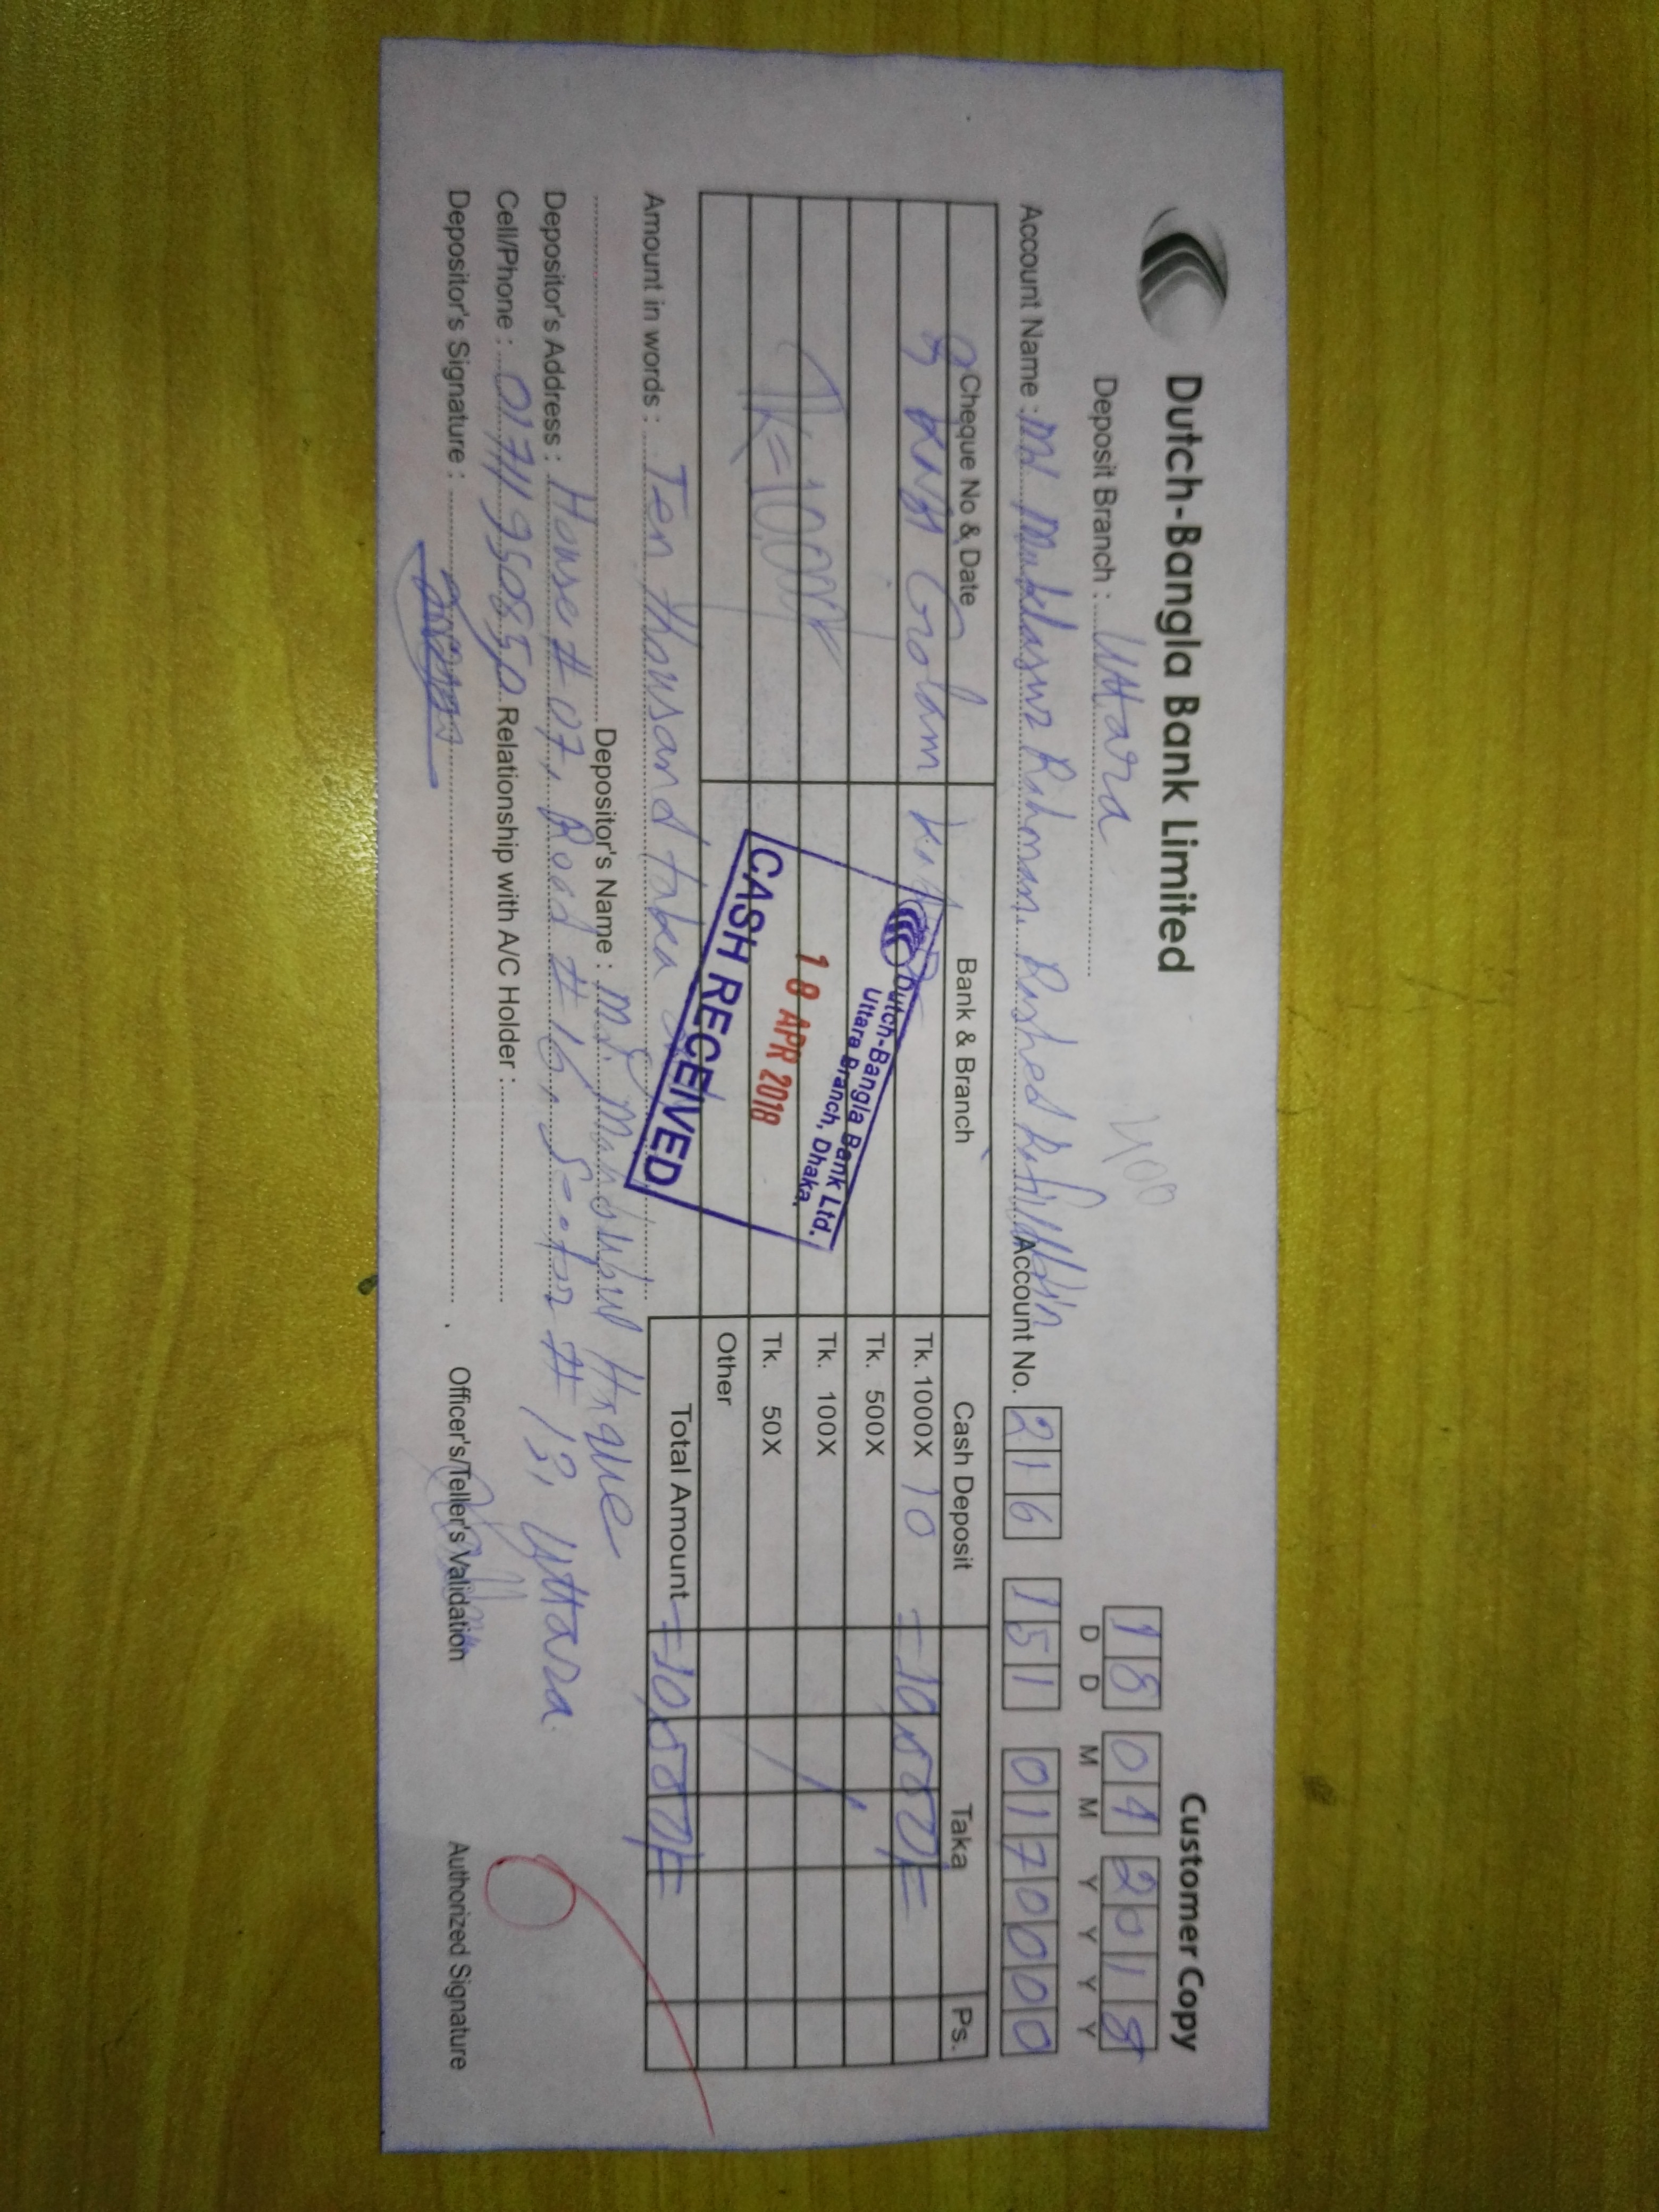 Dutch-Bangla Bank Limited
Customer Copy
400
Deposit Branch : Uttara
18 04 2018
D D M M Y Y Y Y
Account Name : Md Muklasur Rahman, Rashed
Account No. 216 151 0170000
Cheque No & Date Bank & Branch Cash Deposit Taka Ps.
& Kazi Golam
Tk. 1000X 10 =10,000/=
Tk. 500X
Tk. 100X
Tk. 50X
Other
Tk=10,000/
Dutch-Bangla Bank Ltd.
Uttara Branch, Dhaka.
18 APR 2018
CASH RECEIVED
Total Amount =10,000/=
Amount in words : Ten thousand taka
Depositor's Name : Md. Mahbubul Haque
Depositor's Address : House # 07, Road # 16, Sector # 13, Uttara
Cell/Phone : 01711950850 Relationship with A/C Holder :
Depositor's Signature :
Officer's/Teller's Validation
Authorized Signature